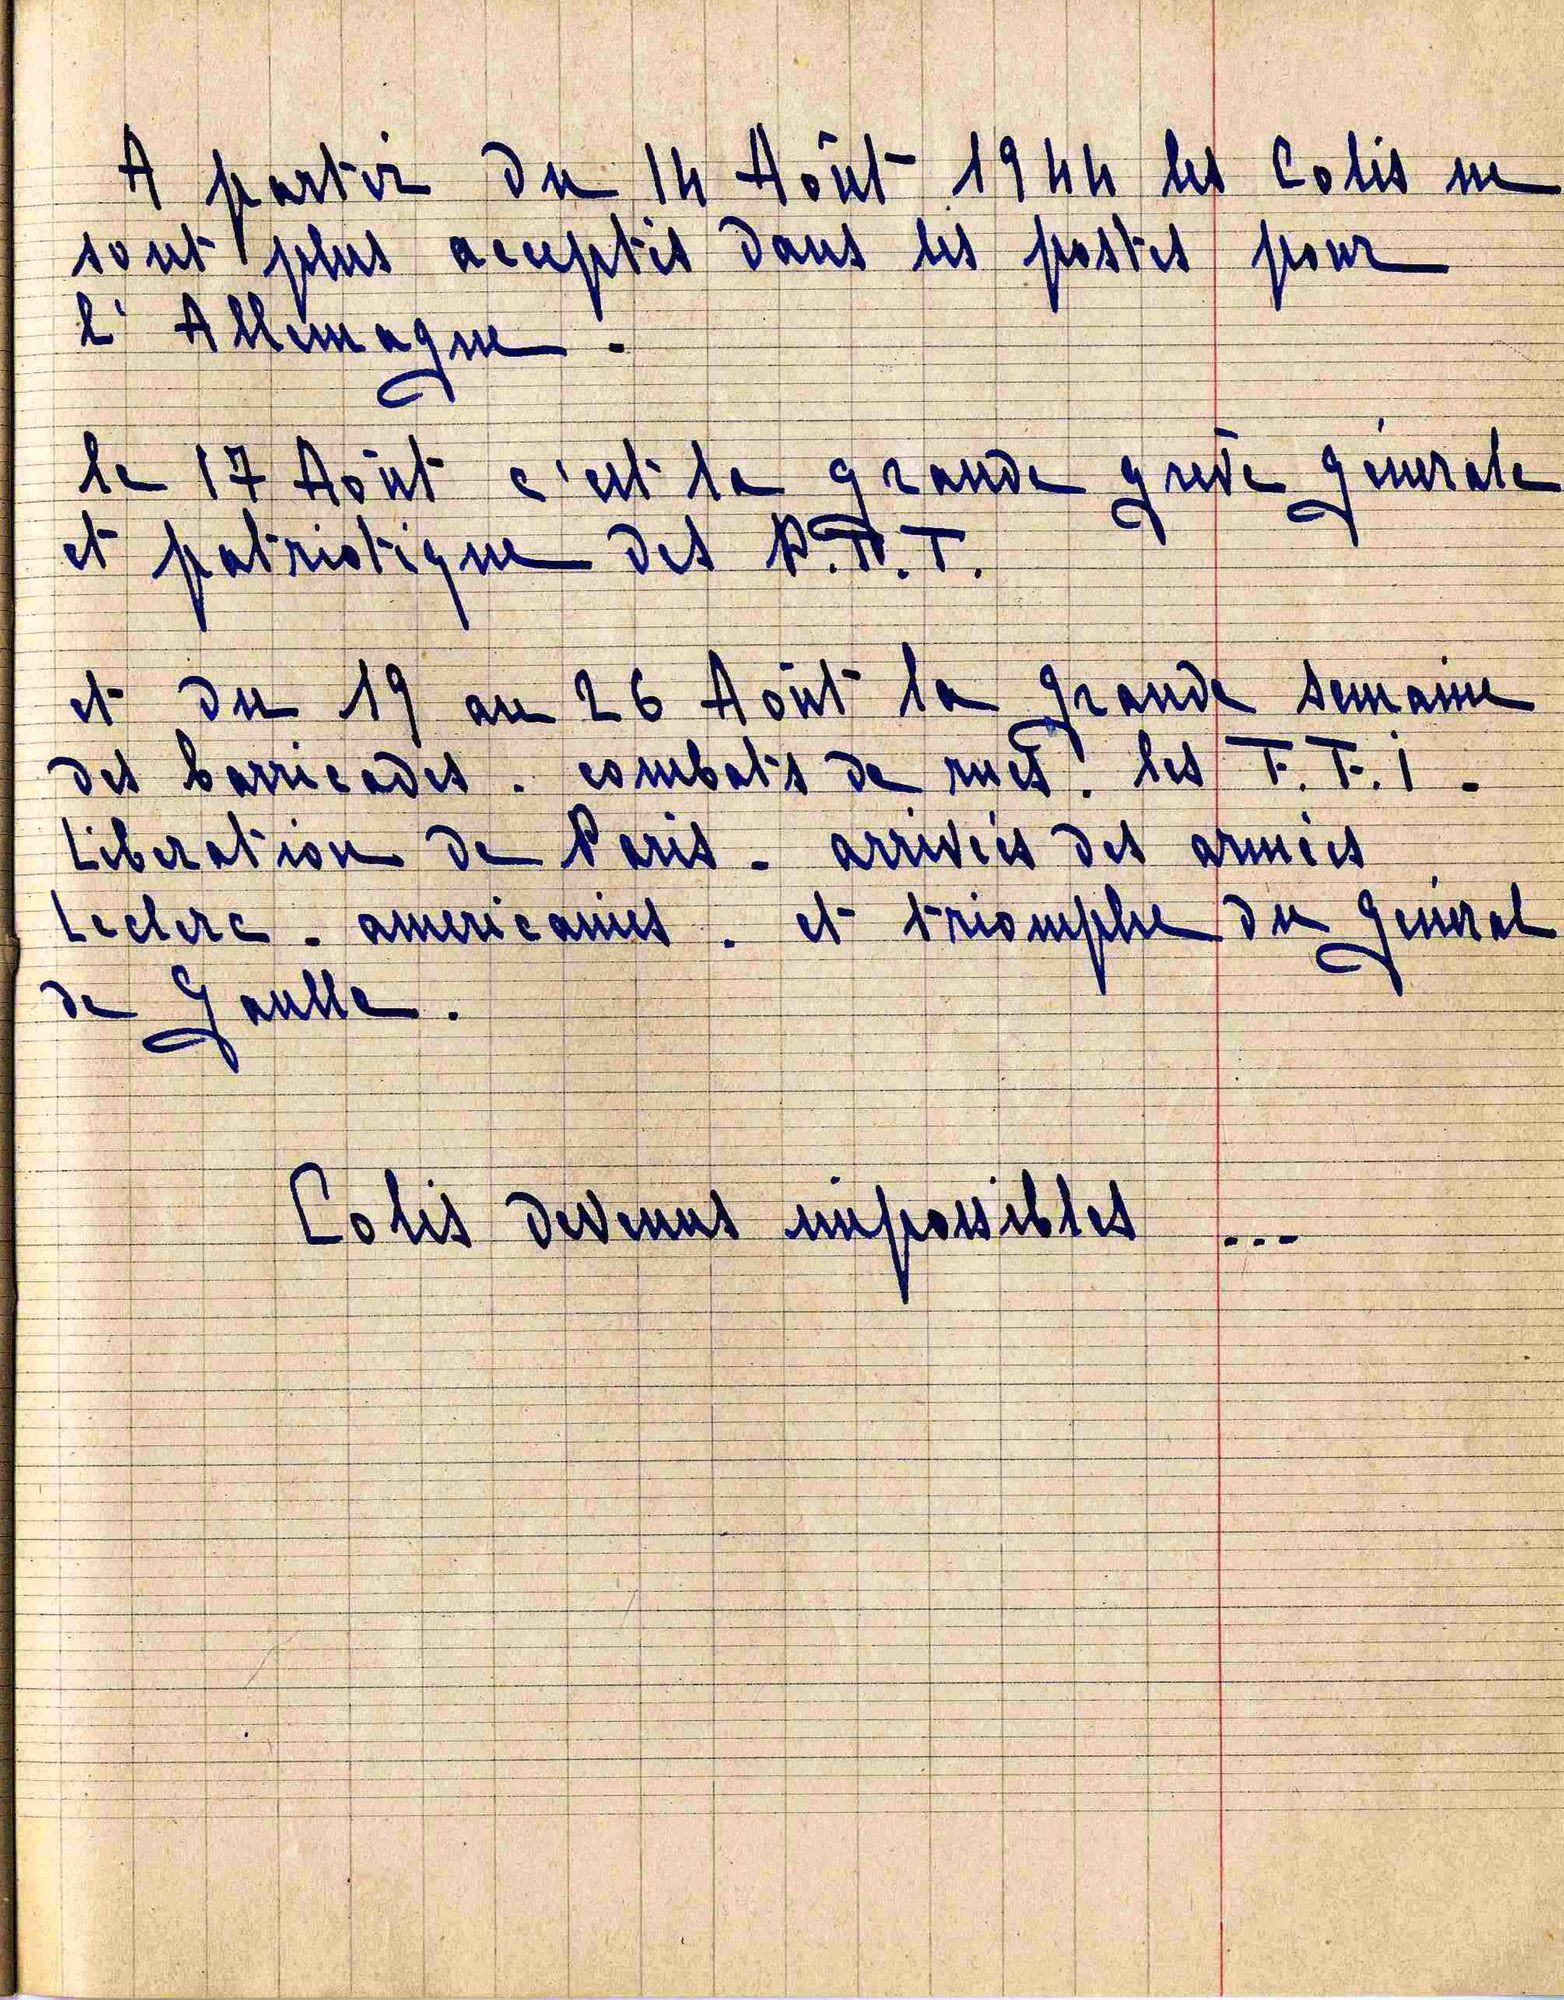 A partir du 14 Août 1944 les Colis ne
sont plus acceptés dans les postes pour
l'Allemagne.
le 17 Août c'est la grande greve générale
et patriotique des P.T.T.
et du 19 au 26 Août la grande semaine
des barricades. combats de rues. les F.F.i -
Liberation de Paris - arrivées des armées
Leclerc - americaines. et triomphe du général
de Gaulle.
Colis devenus impossibles ...